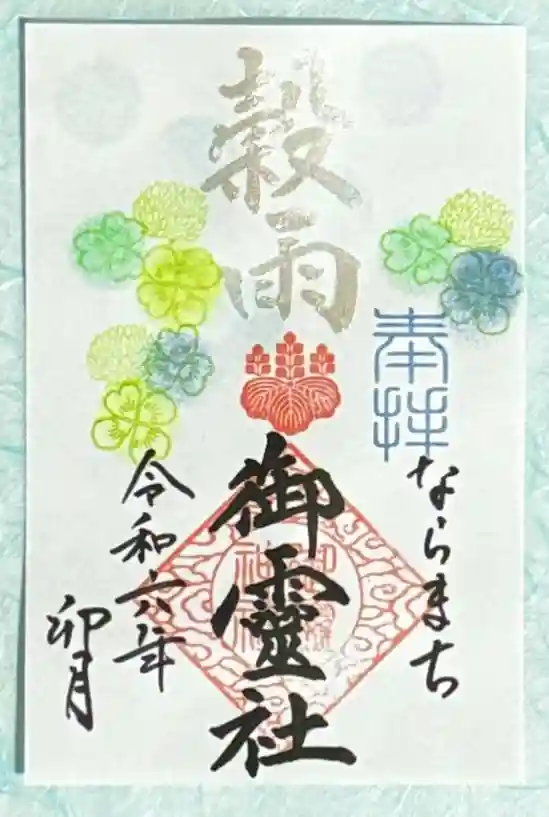 奉拝
ならまち
穀雨
御靈社
令和六年
卯月